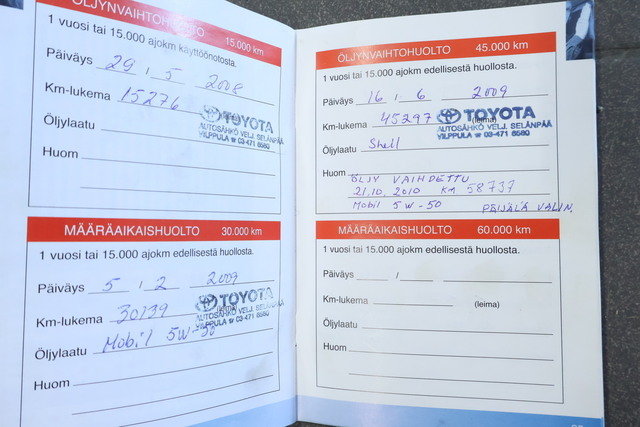 ÖLJYNVAIHTOHUOLTO 15.000 km
1 vuosi tai 15.000 ajokm käyttöönotosta.
Päiväys 29 / 5 2008
Km-lukema 15276
TOYOTA
AUTOSÄHKÖ VELJ. SELÄNPÄÄ
VILPPULA ☎ 03-471 8580
Öljylaatu
Huom
MÄÄRÄAIKAISHUOLTO 30.000 km
1 vuosi tai 15.000 ajokm edellisestä huollosta.
Päiväys 5 / 2 2009
Km-lukema 30139
TOYOTA
(leima)
AUTOSÄHKÖ VELJ. SELÄNPÄÄ
VILPPULA ☎ 03-471 8580
Öljylaatu Mobil 5W-50
Huom
ÖLJYNVAIHTOHUOLTO 45.000 km
1 vuosi tai 15.000 ajokm edellisestä huollosta.
Päiväys 16 / 6 2009
Km-lukema 45297
TOYOTA
(leima)
AUTOSÄHKÖ VELJ. SELÄNPÄÄ
VILPPULA ☎ 03-471 8580
Öljylaatu Shell
Huom
ÖLJY VAIHDETTU
21.10. 2010 KM 58737
Mobil 5W-50 PEIJÄLÄ VALIN.
MÄÄRÄAIKAISHUOLTO 60.000 km
1 vuosi tai 15.000 ajokm edellisestä huollosta.
Päiväys /
Km-lukema (leima)
Öljylaatu
Huom